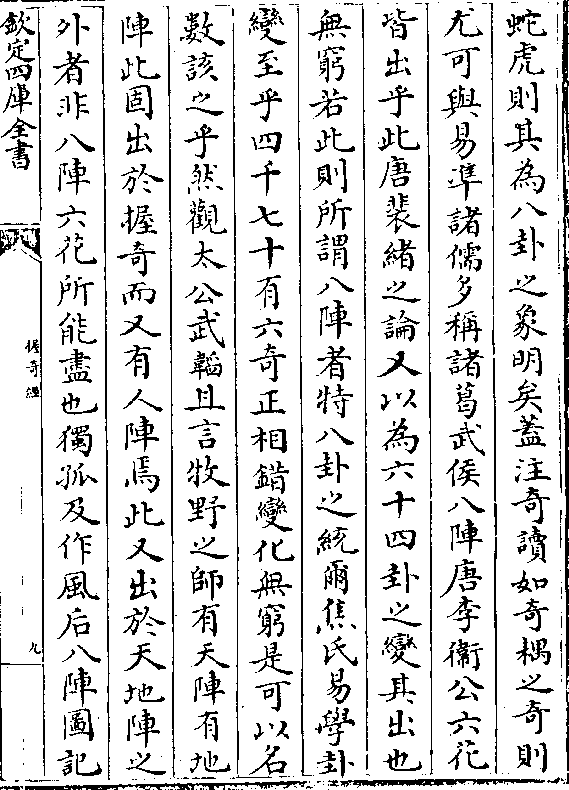 蛇虎則其為八卦之象明矣蓋注奇讀如奇耦之奇則
尤可與易準諸儒多稱諸葛武侯八陣唐李衛公六花
皆出乎此唐裴緒之論又以為六十四卦之變其出也
無窮若此則所謂八陣者特八卦之統爾焦氏易學卦
變至乎四千七十有六奇正相錯變化無窮是可以名
數該之乎然觀太公武韜且言牧野之師有天陣有地
陣此固出於握奇而又有人陣焉此又出於天地陣之
外者非八陣六花所能盡也獨孤及作風后八陣圖記
欽定四庫全書
握奇經
九